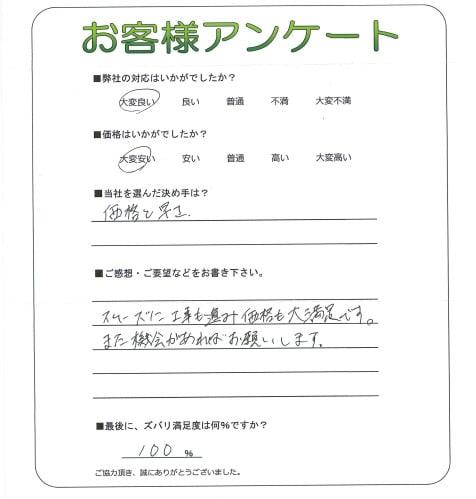 お客様アンケート
■弊社の対応はいかがでしたか？
大変良い 良い 普通 不満 大変不満
■価格はいかがでしたか？
大変安い 安い 普通 高い 大変高い
■当社を選んだ決め手は？
価格と早さ
■ご感想・ご要望などをお書き下さい。
スムーズに工事も進み価格も大満足です。
また機会があればお願いします。
■最後に、ズバリ満足度は何％ですか？
100 %
ご協力頂き、誠にありがとうございました。